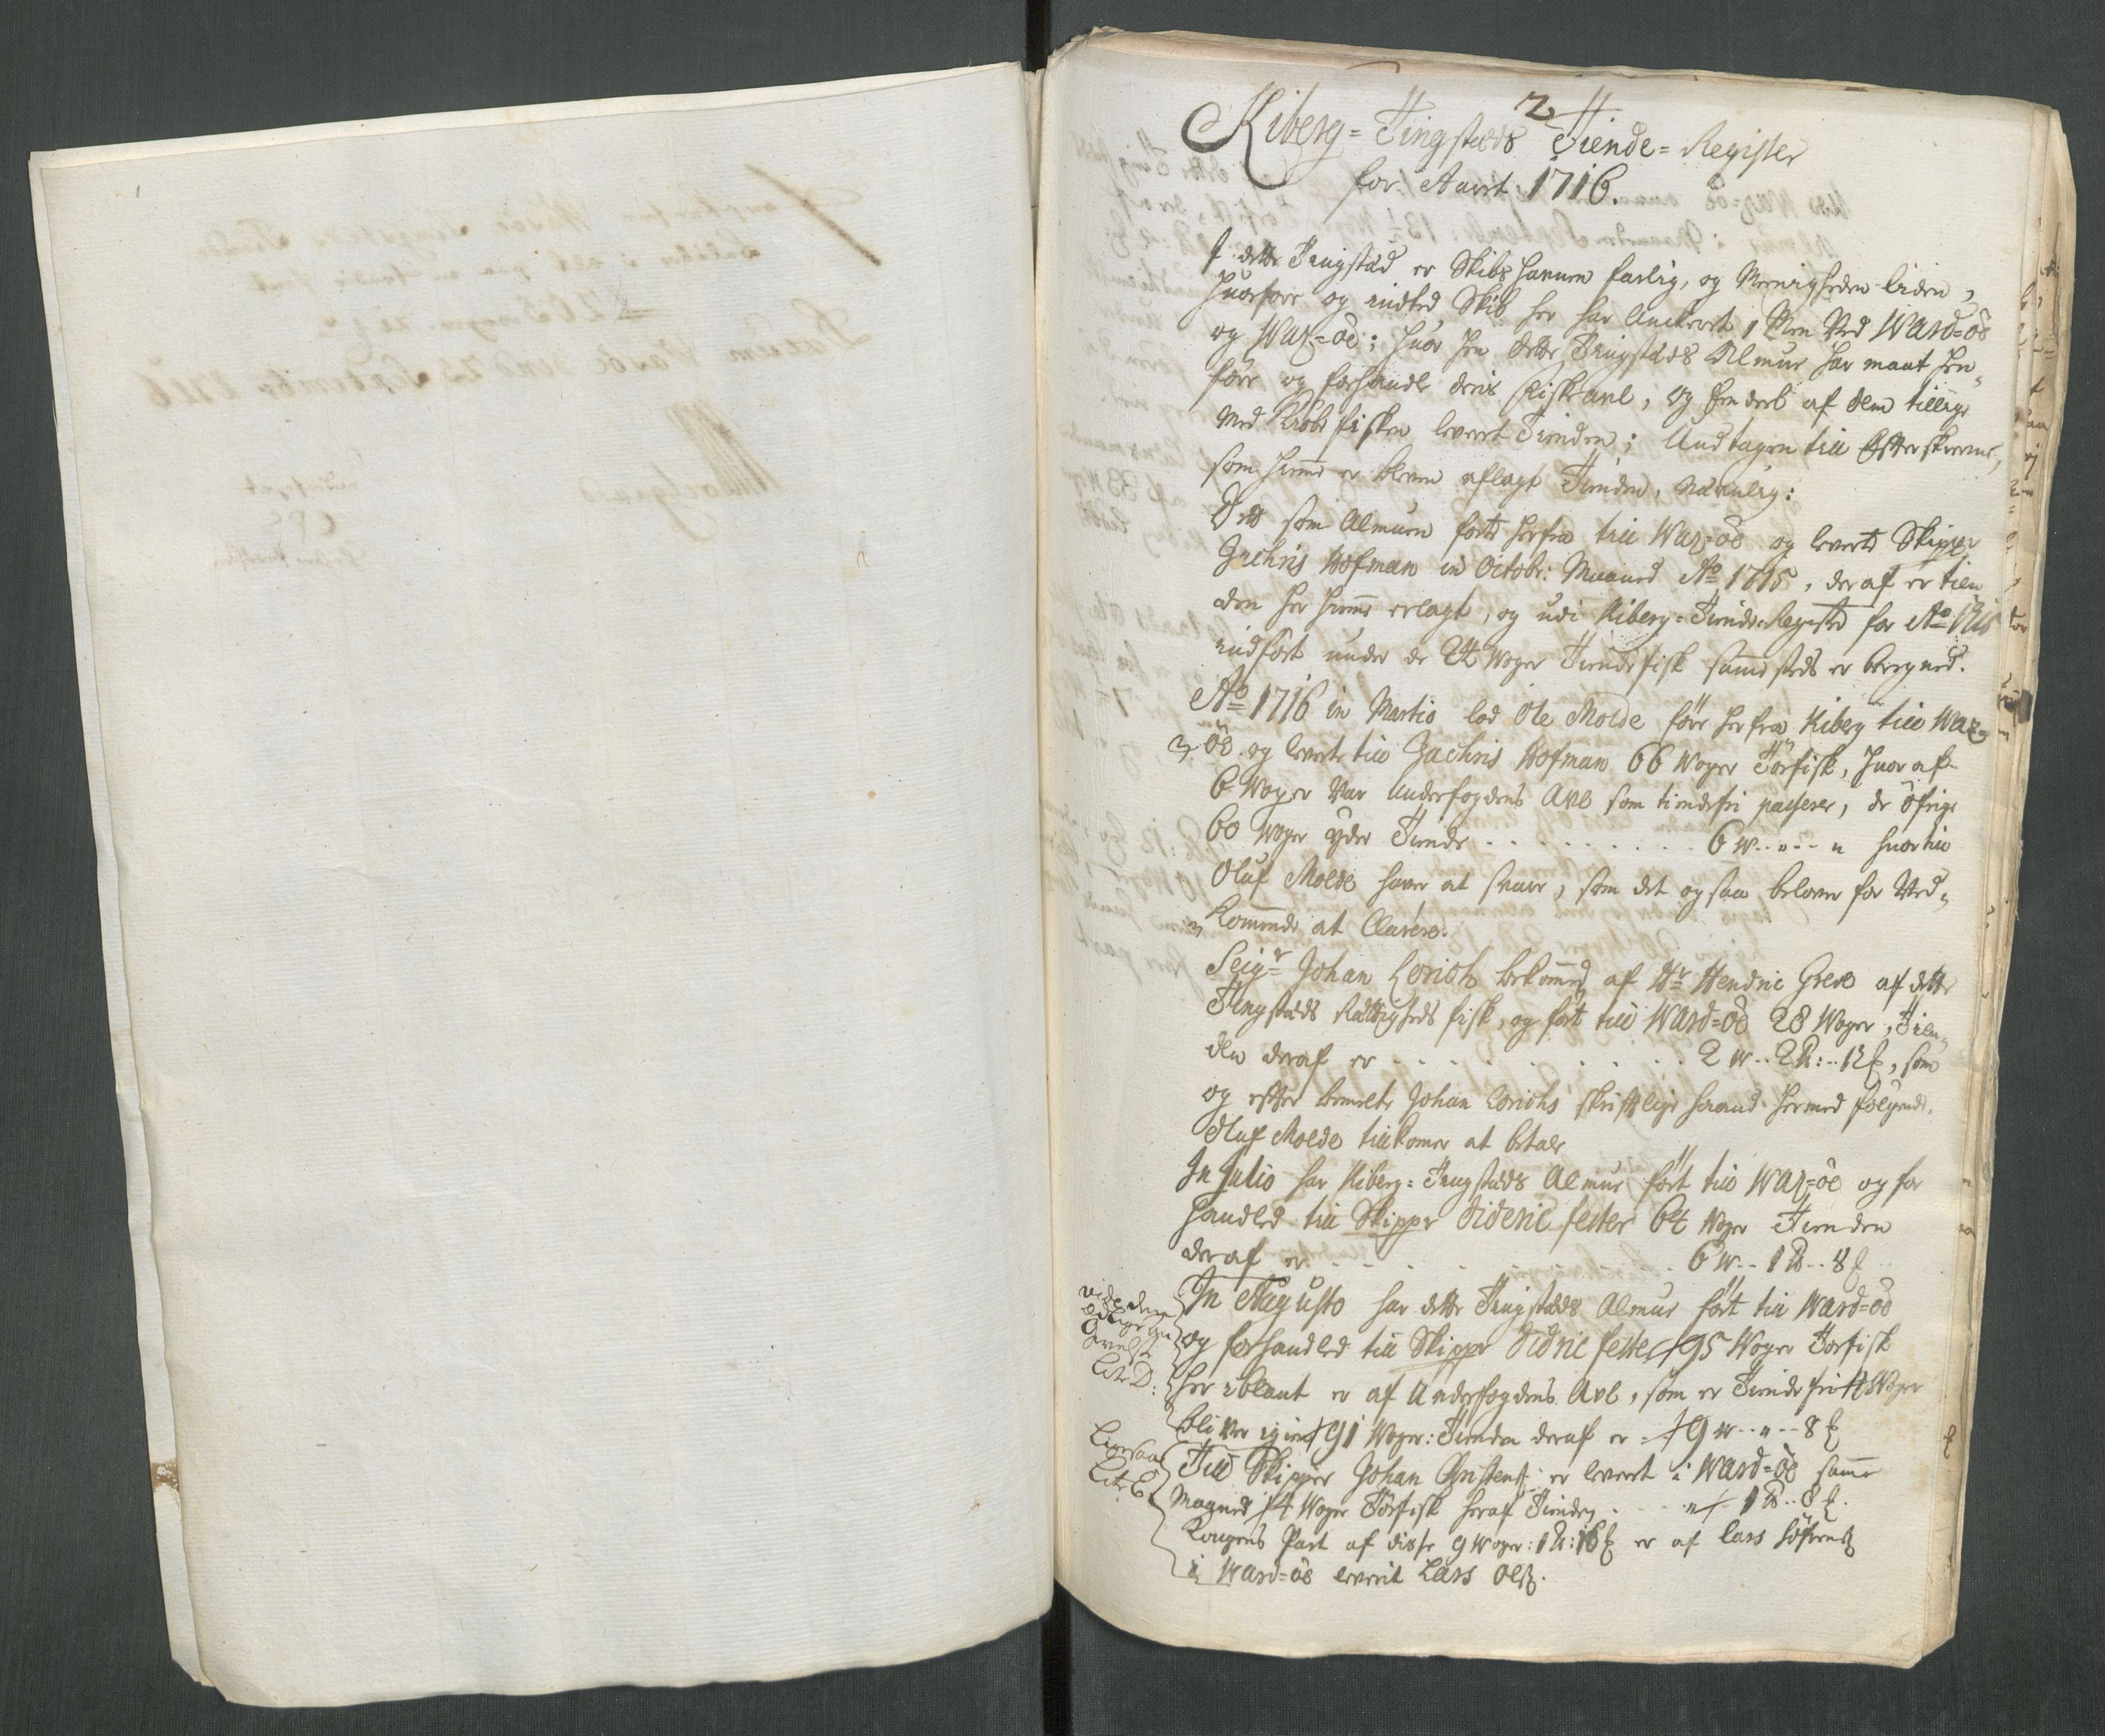 2
Kiberg=Tingsteds Tiende=Register
for Aaret 1716.
I dette Tingsted er Skibs hafnen farlig, og Menigheden liden,
huorfore og indted Skib her har Anckeret, Men Ved Ward=öe
og Waz=öe; huor hen dette Tingsteds Almue har maat hen,,
före og forhandle deris fiske avl, og Een deel af dem tillige
med Kiöbfisken leveret Tienden; Undtagen till Efterskrevne,
som hieme er bleven aflagt Tienden, Nemlig:
Dett som Almuen förte herfra till Waz=öe og leverte Skipper
Zachris Hofman in Octobr: Maaned Ao 1715, deraf er tien
den her hieme erlagt, og udi Kiberg=Tiende=Register for Ao 1715
indfört under de 24 Woger Tiende fisk samesteds er beregned.
Ao 1716 in Martio lod Ole Molde före her fra Kiberg till Waz=
öe og leverte till Zachris Hofman 66 Woger Törfisk, huoraf
6 Woger Var Underfogdens Avl som tiendefri passerer, de öfrige
60 Woger yder Tiende . . . . . . . . . 6 w .. „ -- „ huortill
Oluf Molde haver at svare, som det og saa belover for Ved,,
kommende at Clarere.
Seigr Johan Lorich bekommed af Hr Hendric Greve af dette
Tingsteds Rettigheds fisk, og fört till Ward=öe 28 Woger, Tien,,
den deraf er . . . . . . . . . 2 w .. 2 ℔: .. 12 ℔, som
og efter bemelte Johan Lorichs skriftlige haand hermed fölgende,
Oluf Molde tilkomer at betale
In Julio har Kiberg=Tingsteds Almue fört till Waz=öe og for
handled till Skipper Dideric fester 64 Woger Tienden
deraf er . . . . . . . . 6 w .. 1 ℔ .. 8 ℔
In Augusto har dette Tingsteds Almue fört till Ward=öe
og forhandled till Skipper Didric fester 95 Woger Törfisk
her iblant er af Underfogdens Avl, som er Tiende fri 4 Woger
bliver igien 91 Woger: Tienden deraf er . 9 w .. „ -- 8 ℔
Till Skipper Johan Christens: er leveret i Ward=öe same
Maaned 14 Woger Törfisk heraf Tienden . . . „ 1 ℔ .. 8 ℔.
Kongens Part af disse 9 Woger: 1 ℔: 16 ℔ er af Lars
i Ward=öe leverit Lars Ols:.
vide den
Lit: D:
Lit: E